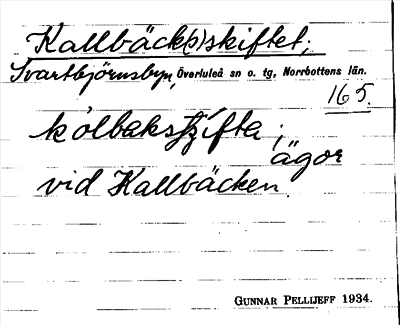 Kallbäck(s)skiftet;
Svartbjörnsbyn, Överluleå sn o. tg, Norrbottens län.
165.
ägor
vid Kallbäcken.
GUNNAR PELLIJEFF 1934.